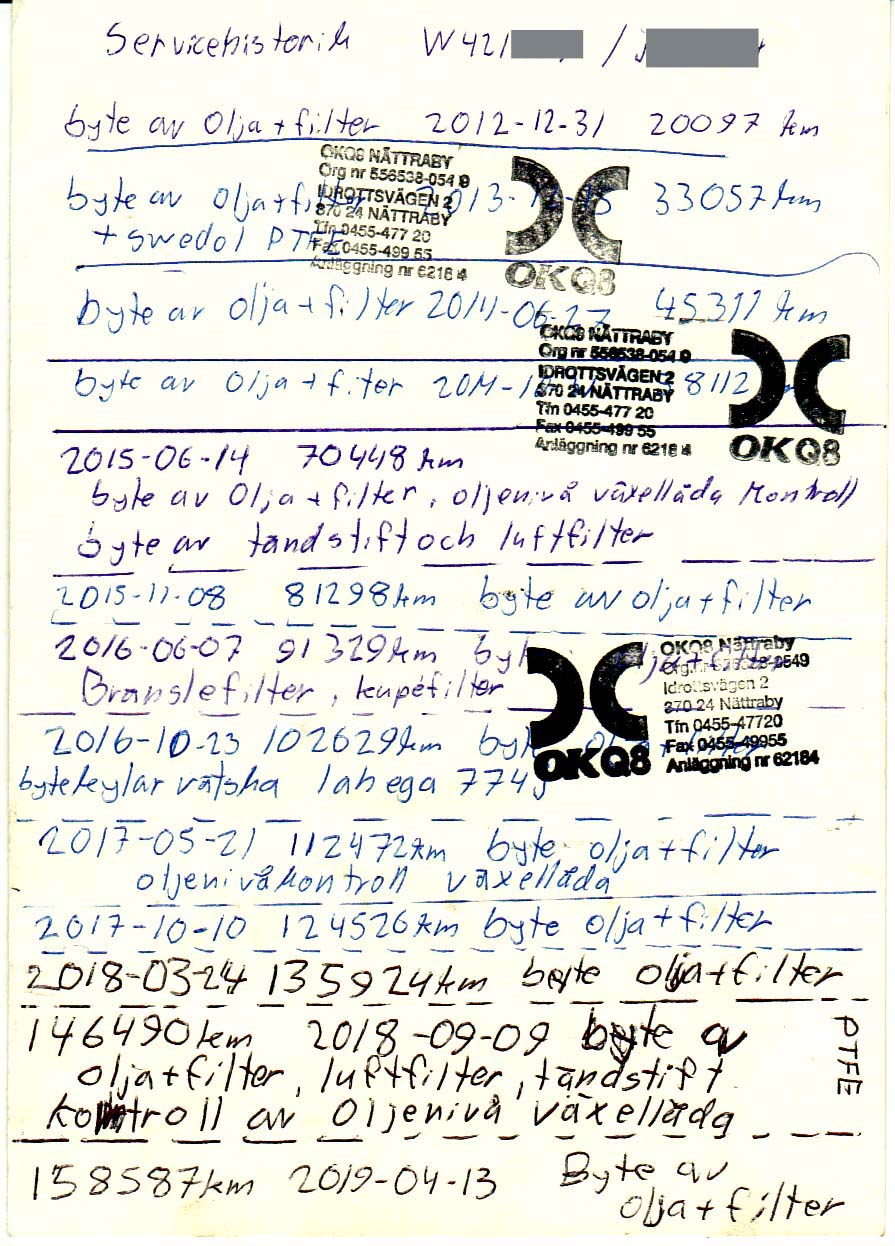 Servicehistorik W421 /
byte av olja+filter 2012-12-31 20097 km
OKQ8 NÄTTRABY
Org nr 556538-0549
IDROTTSVÄGEN 2
370 24 NÄTTRABY
Tfn 0455-477 20
Fax 0455-499 55
Anläggning nr 62184
OKQ8
byte av olja+filter 33057km
+ swedol PTFE
byte av olja+filter 2014-06-27 45311 km
OKQ8 NÄTTRABY
Org nr 556538-0549
IDROTTSVÄGEN 2
370 24 NÄTTRABY
Tfn 0455-477 20
Fax 0455-499 55
Anläggning nr 62184
OKQ8
byte av olja+filter 8112
2015-06-14 70448 km
byte av olja+filter, oljenivå växellåda kontroll
byte av tändstift och luftfilter
2015-11-08 81298km byte av olja+filter
2016-06-07 91329km olja+filter
Bränslefilter, kupéfilter
OKQ8
OKQ8 Nättraby
Idrottsvägen 2
370 24 Nättraby
Tfn 0455-47720
Fax 0455-49955
Anläggning nr 62184
2016-10-23 102629km
byte kylar vätska lahega 774
2017-05-21 112472km byte olja+filter
oljenivåkontroll växellåda
2017-10-10 124526km byte olja+filter
2018-03-24 135924km byte olja+filter
146490km 2018-09-09 byte a
olja+filter, luftfilter, tändstift
kontroll av oljenivå växellåda
PTFE
158587km 2019-04-13 Byte av
olja+filter